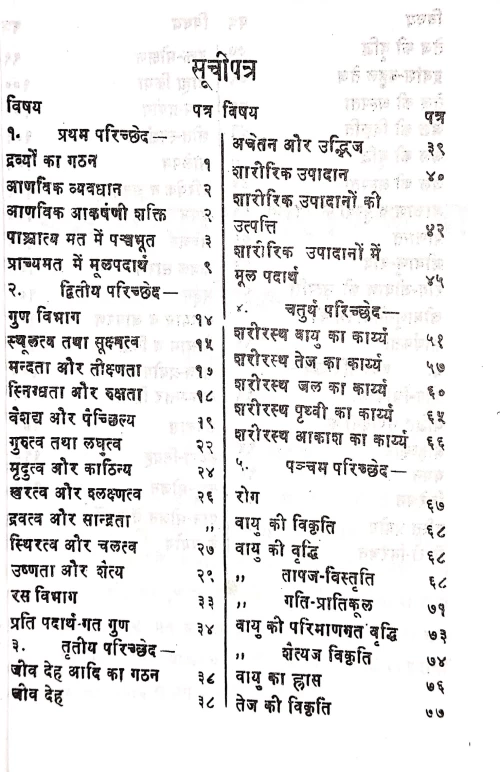 सूचीपत्र
विषय पत्र
१. प्रथम परिच्छेद—
द्रव्यों का गठन १
आणविक व्यवधान २
आणविक आकर्षणी शक्ति २
पाश्चात्य मत में पञ्चभूत ३
प्राच्यमत में मूलपदार्थ ९
२. द्वितीय परिच्छेद—
गुण विभाग १४
स्थूलत्व तथा सूक्ष्मत्व १५
मन्दता और तीक्ष्णता १७
स्निग्धता और रुक्षता १८
वैशद्य और पैच्छिल्य १९
गुरुत्व तथा लघुत्व २२
मृदुत्व और काठिन्य २४
खरत्व और श्लक्ष्णत्व २६
द्रवत्व और सान्द्रता ,,
स्थिरत्व और चलत्व २७
उष्णता और शैत्य २९
रस विभाग ३३
प्रति पदार्थ-गत गुण ३४
३. तृतीय परिच्छेद—
जीव देह आदि का गठन ३८
जीव देह ३८
विषय पत्र
अचेतन और उद्भिज ३९
शारीरिक उपादान ४०
शारीरिक उपादानों की
उत्पत्ति ४२
शारीरिक उपादानों में
मूल पदार्थ ४५
४. चतुर्थ परिच्छेद—
शरीरस्थ वायु का कार्य्य ५१
शरीरस्थ तेज का कार्य्य ५७
शरीरस्थ जल का कार्य्य ६०
शरीरस्थ पृथ्वी का कार्य्य ६५
शरीरस्थ आकाश का कार्य्य ६६
५. पञ्चम परिच्छेद—
रोग ६७
वायु की विकृति ६८
वायु की वृद्धि ६८
,, तापज-विस्तृति ६८
,, गति-प्रातिकूल ७१
वायु की परिमाणगत वृद्धि ७३
,, शैत्यज विकृति ७४
वायु का ह्रास ७६
तेज की विकृति ७७